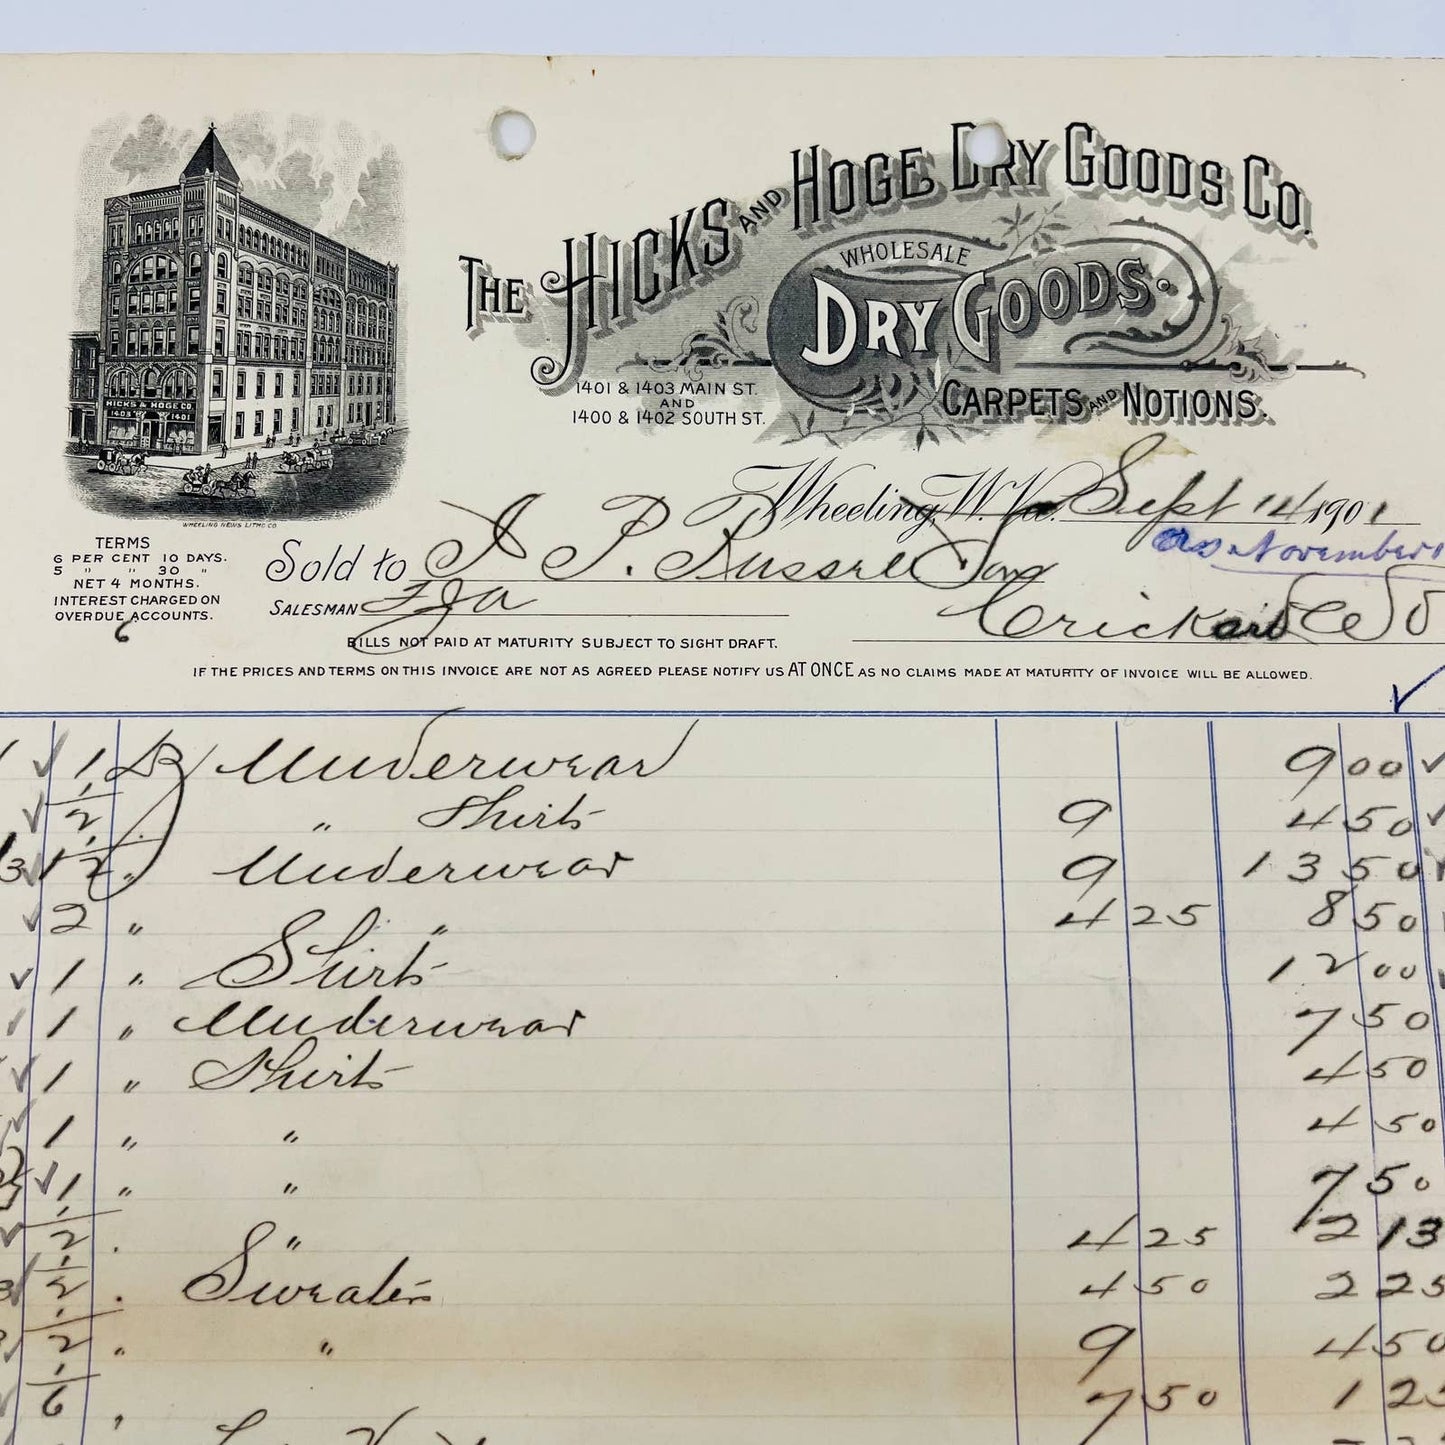 THE HICKS AND HOGE DRY GOODS CO.
WHOLESALE
DRY GOODS
CARPETS AND NOTIONS.
1401 & 1403 MAIN ST.
AND
1400 & 1402 SOUTH ST.
HICKS & HOGE CO.
1403 1401
WHEELING NEWS LITHO CO.
Wheeling, W. Va. Sept 14 1901
as November 1
TERMS
6 PER CENT 10 DAYS.
5 " " 30 "
NET 4 MONTHS.
INTEREST CHARGED ON
OVERDUE ACCOUNTS.
6
Sold to P. Russell
SALESMAN
BILLS NOT PAID AT MATURITY SUBJECT TO SIGHT DRAFT.
IF THE PRICES AND TERMS ON THIS INVOICE ARE NOT AS AGREED PLEASE NOTIFY US AT ONCE AS NO CLAIMS MADE AT MATURITY OF INVOICE WILL BE ALLOWED.
1 Underwear 9 00
1/2 " Shirts 9 4 50
1 1/2 " Underwear 9 13 50
2 " " 4 25 8 50
1 " Shirts 12 00
1 " Underwear 7 50
1 " Shirts 4 50
1 " " 4 50
1 " " 7 50
1/2 " 4 25 2 13
1/2 " Sweaters 4 50 2 25
1/2 " " 9 4 50
1/6 " 7 50 1 25